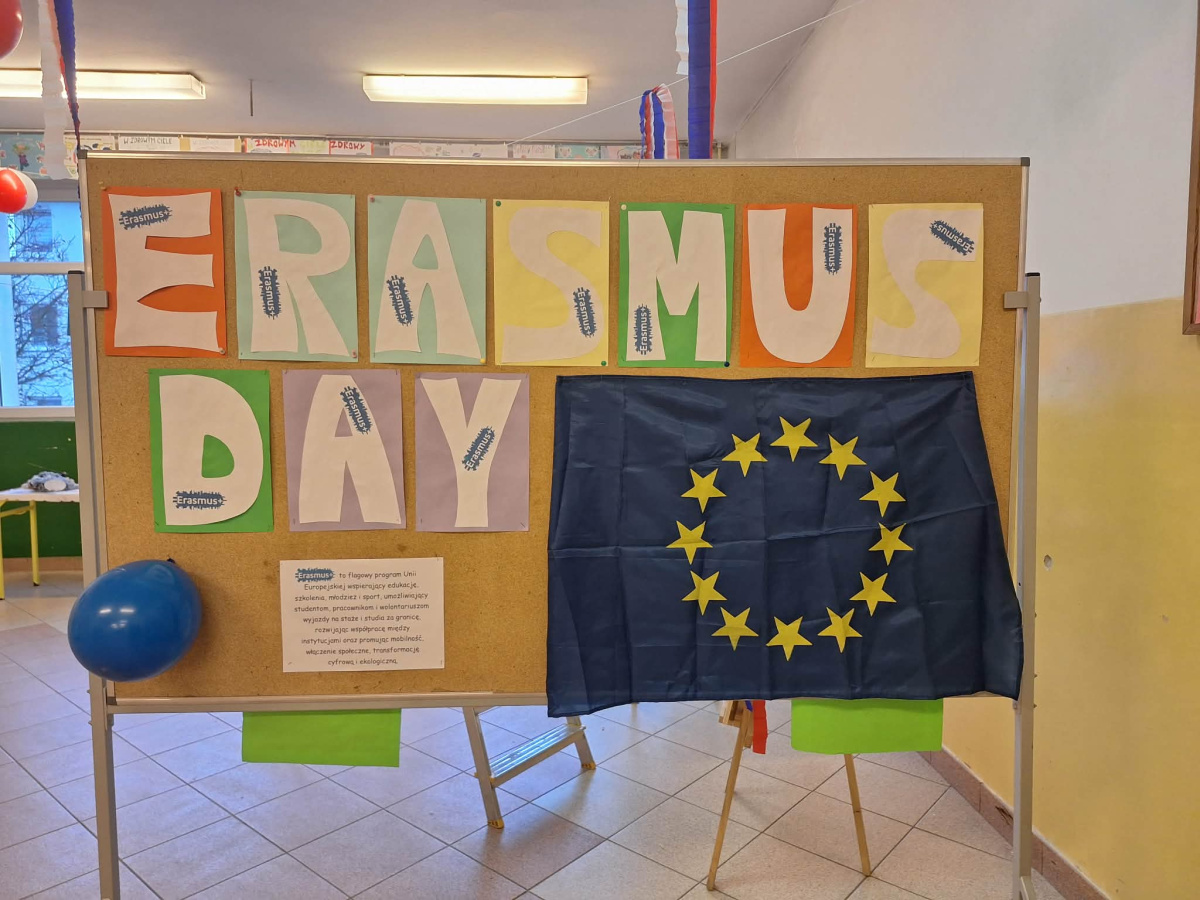 W ZDROWYM CIELE
ZDROWYM
ZDROWY
ERASMUS
Erasmus+
Erasmus+
Erasmus+
Erasmus+
Erasmus+
Erasmus+
Erasmus+
DAY
Erasmus+
Erasmus+
Erasmus+
Erasmus+ to flagowy program Unii
Europejskiej wspierający edukację,
szkolenia, młodzież i sport, umożliwiający
studentom, pracownikom i wolontariuszom
wyjazdy na staże i studia za granicę,
rozwijając współpracę między
instytucjami oraz promując mobilność,
włączenie społeczne, transformację
cyfrową i ekologiczną.